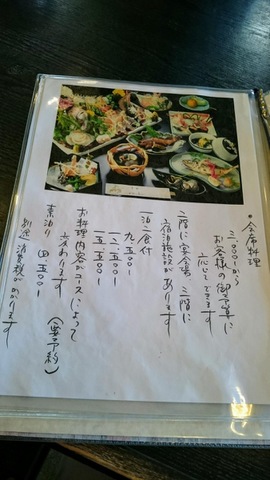 •会席料理
三〇〇〇から
お客様の御予算に
応じてできます
二階に宴会場 三階に
宿泊施設があります
一泊二食付
九、五〇〇
一二、五〇〇
一五、五〇〇
お料理内容がコースによって
変わります
(要予約)
素泊り 四、五〇〇
別途 消費税がかかります